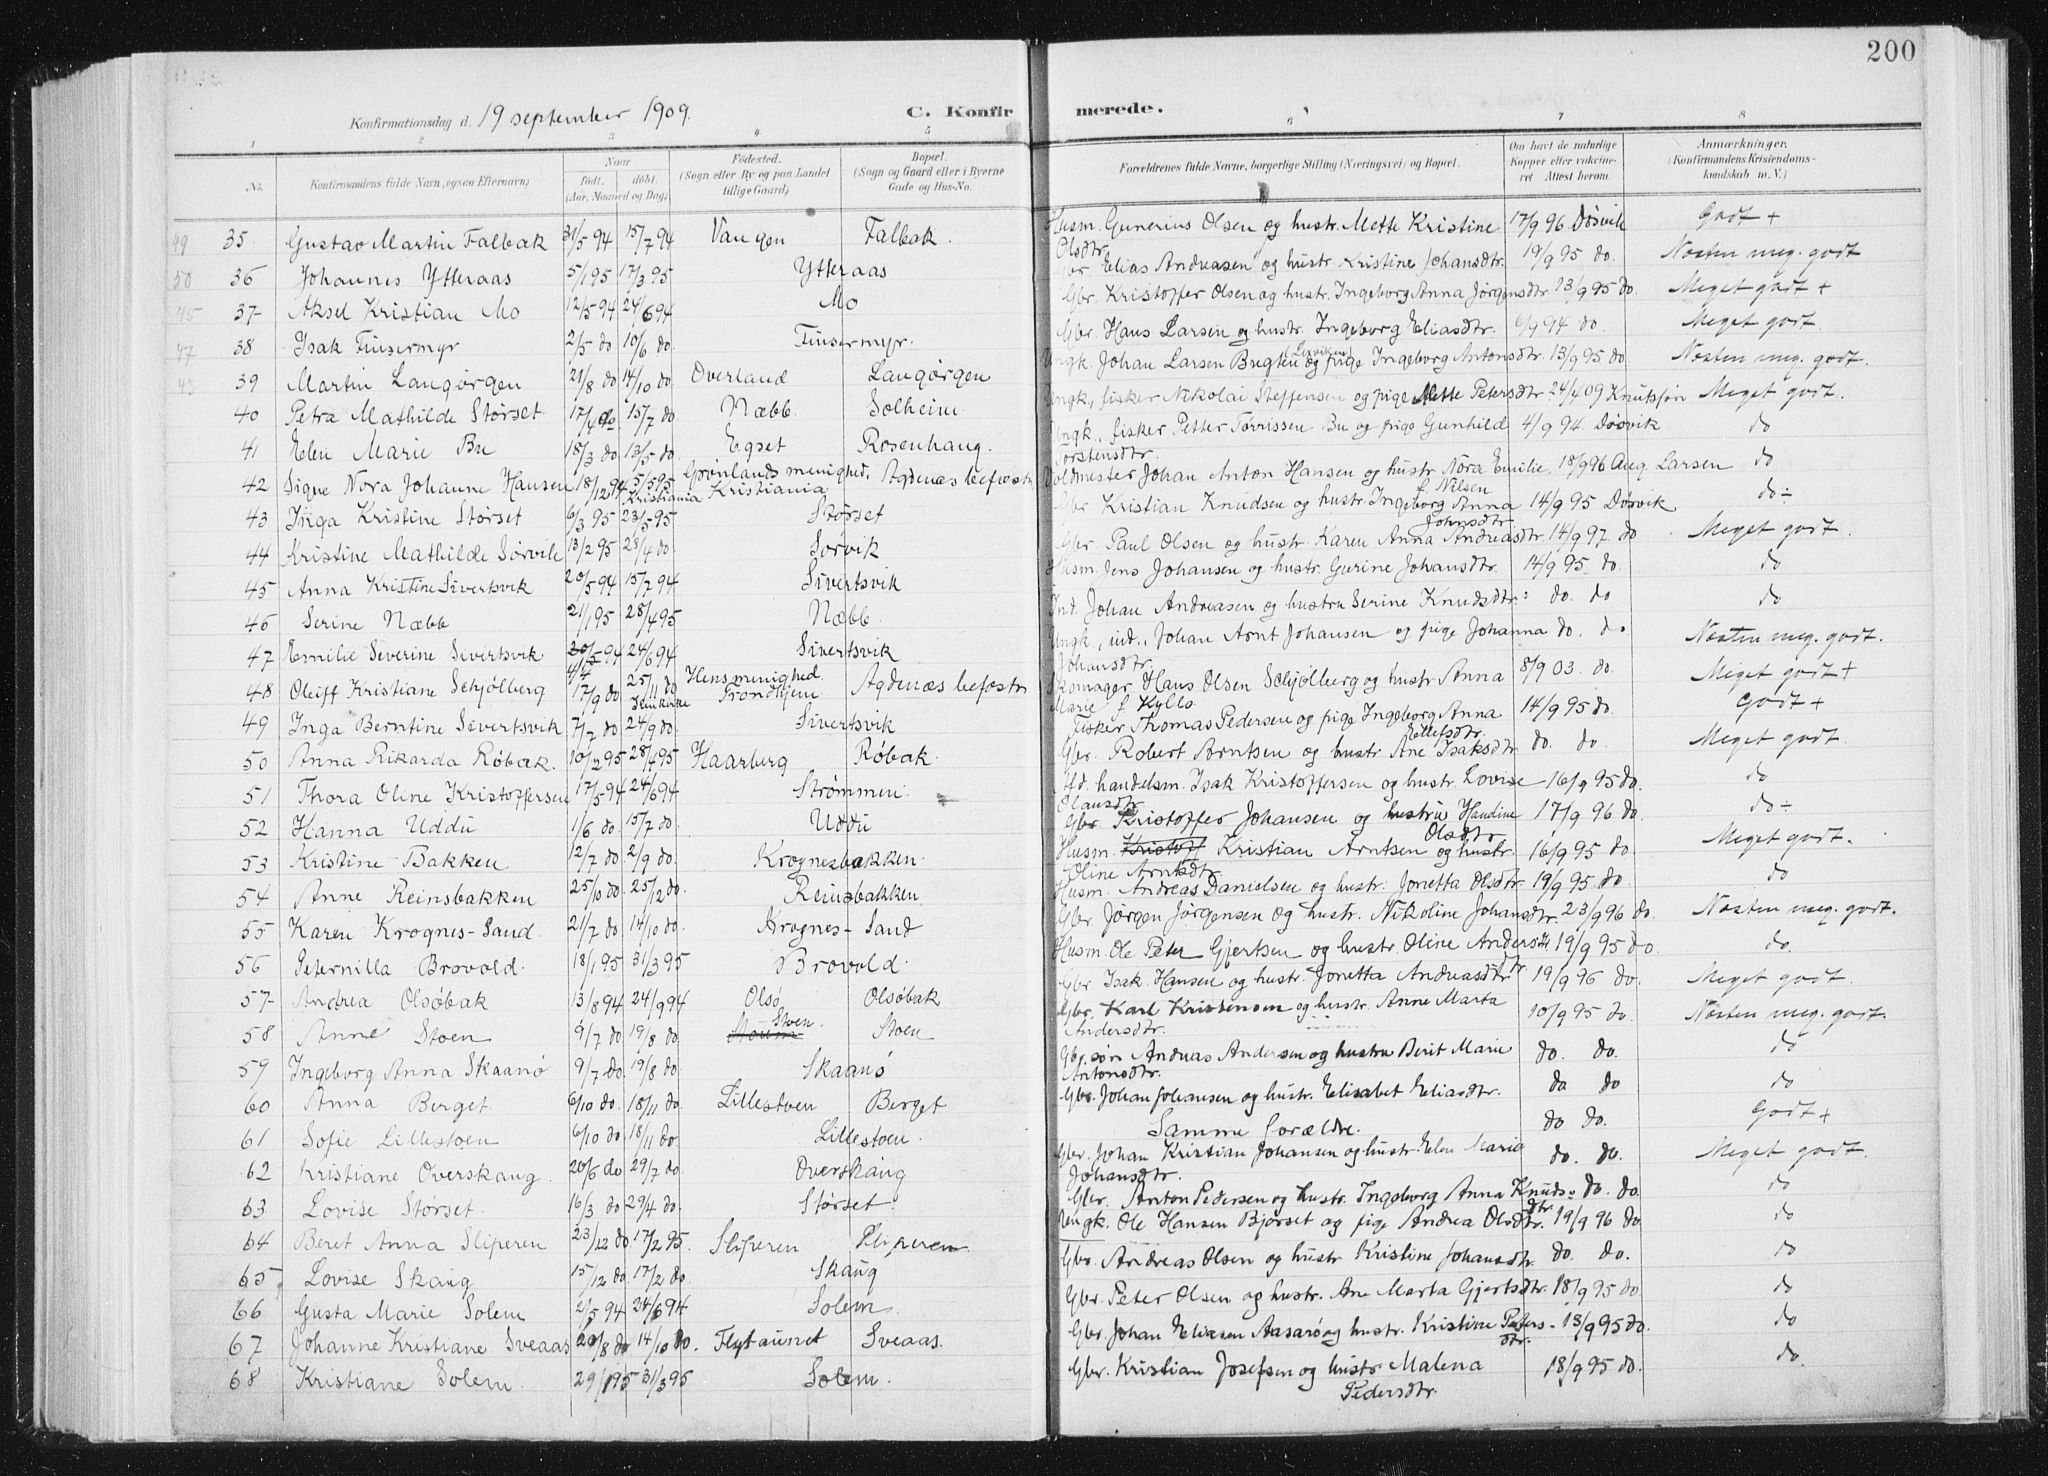 200
Konfirmationsdag d. 19 september 1909. C. Konfir merede.
1 2 3 4 5 6 7 8
No. Konfirmandens fulde Navn, (ogsaa Efternavn) Naar født. døbt. (Aar, Maaned og Dag) Fødested. (Sogn eller By og paa Landet tillige Gaard) Bopæl. (Sogn og Gaard eller i Byerne Gade og Hus-No. Forældrenes fulde Navne, borgerlige Stilling (Næringsvei) og Bopæl. Om havt de naturlige Kopper eller vakcineret. Attest herom. Anmærkninger. (Konfirmandens Kristendomskundskab m. V.)
49 35. Gustav Martin Falbak 31/5 94 15/7 94 Vangen Falbak. Husm. Gunerius Olsen og hustr. Mette Kristine Olsdtr. 17/9 96 Døsvik Godt +
50 36 Johannes Ytteraas 5/1 95 17/3 95 Ytteraas Gbr. Elias Andreasen og hustr. Kristine Johansdtr. 19/9 95 do. Næsten meg. godt
45 37 Aksel Kristian Mo 12/5 94 24/6 94 Mo Gbr. Kristoffer Olsen og hustr. Ingeborg Anna Jørgensdtr 13/9 95 do. Meget godt +
47 38 Isak Finsermyr 2/5 do 10/6 do. Finsermyr. Gbr. Hans Larsen og hustr. Ingeborg Eliasdtr. 6/9 94 do. Meget godt.
43 39 Martin Langørgen 21/8 do 14/10 do Overland Langørgen Ungk. Johan Larsen Bugten Lexviken og pige Ingeborg Antonsdtr. 13/9 95 do Næsten meg. godt.
40 Petra Mathilde Størset 17/4 do. 15/7 do. Næbb. Solheim Ungk., fisker Nikolai Steffensen og pige Mette Petersdtr 24/4 09 Knutsson Meget godt.
41 Elen Marie Bu 18/3 do 13/5 do. Egset Rosenhaug. Ungk., fisker Petter Tørrissen Bu og pige Gunhild Torstensdtr. 4/9 94 Døsvik do
42 Signe Nora Johanne Hansen 18/12 94 5/5 95 Kristiania Grønlands menighed. Kristiania Agdenæs befæstn Voldmester Johan Anton Hansen og hustr Nora Emilie f. Nilsen 18/9 96 Aug. Larsen do
43 Inga Kristine Størset 6/3 95 23/5 95 Størset Gbr. Kristian Knudsen og hustr Ingeborg Anna Johnsdtr. 14/9 95 Døsvik do ÷
44 Kristine Mathilde Sørvik 13/2 95 28/4 do. Sørvik Gbr Paul Olsen og hustr. Karen Anna Andreasdtr 14/9 97 do Meget godt.
45 Anna Kristine Sivertsvik 20/5 94 15/7 94 Sivertsvik Husm Jens Johansen og hustr. Gurine Johansdtr. 14/9 95. do. do
46 Serine Næbb 21/1 95 28/4 95 Næbb. Ind. Johan Andreasen og hustru Serine Knudsdtr. do. do do
47 Emilie Severine Sivertsvik 30/5 94 4/4 24/6 94 Sivertsvik Ungk., ind., Johan Arnt Johansen og pige Johanna Johansdtr. do. do Næsten meg. godt.
48 Oleiff Kristiane Schjølberg 17/9 do 25/11 do Hensmenighed Trondhjem Agdenæs befæstn Skomager Hans Olsen Schjølberg og hustr Anna Marie f. Kyllo 8/9 03. do. Meget godt +
49 Inga Berntine Sivertsvik 7/7 do 24/9 do. Sivertsvik Fisker Thomas Pedersen og pige Ingeborg Anna Ellefsdtr. 14/9 95 do. Godt +
50 Anna Rikarda Røbak. 10/2 95 28/4 95 Haarberg Røbak. Gbr. Robert Arntsen og hustr Ane Isaksdtr. do. do. Meget godt.
51 Thora Oline Kristoffersen 17/5 94 24/6 94 Strømmen. Afd. handelsm. Isak Kristoffersen og hustr. Lovise Olausdtr. 16/9 95 do. do
52 Hanna Uddu 1/6 do. 15/7 do. Uddu Gbr Kristoffer Johansen og hustru Handine Olsdtr 17/9 96 do. do ÷
53 Kristine Bakken 12/7 do 2/9 do. Krognesbakken. Husm. Kristoff Kristian Arntsen og hustr. Oline Arntsdtr. 16/9 95 do. Meget godt.
54 Anne Reinsbakken 25/10 do. 25/12 do. Reinsbakken Husm. Andreas Danielsen og hustr. Jonetta Olsdtr. 19/9 95 do. do
55 Karen Krognes-Sand 21/7 do 14/10 do. Krognes-Sand Gbr. Jørgen Jørgensen og hustr. Nikoline Johansdtr. 23/9 96 do. Næsten meg. godt.
56 Peternilla Brovold. 18/1 95 31/3 95 Brovold. Husm. Ole Peter Gjertsen og hustr. Oline Andersdtr 19/9 95 do. do.
57 Andrea Olsøbak 13/8 94 24/9 94 Olsø Olsøbak Gbr. Isak Hansen og hustr. Jonetta Andreasdtr 19/9 96 do. Meget godt.
58 Anne Stoen 9/7 do 19/8 do Stoen. Stoen Gbr. Karl Kristensen og hustr. Anne Marta Andersdtr. 10/9 95 do. Næsten meg. godt.
59 Ingeborg Anna Skaanø 9/7 do 19/8 do Skaanø Gbr.søn Andreas Andersen og hustru Berit Marie Antonsdtr. do. do. do
60 Anna Berget. 6/10 do. 18/11 do. Lillestoen Berget Gbr. Johan Johansen og hustr. Elisabet Eliasdtr. do do do
61 Sofie Lillestoen 6/10 do 18/11 do. Lillestoen. Samme forældre. do do. Godt +
62 Kristiane Overskaug. 20/6 do 29/7 do Overskaug Gbr. Johan Kristian Johansen og hustr. Elen Maria Johansdtr. do. do. Meget godt.
63 Lovise Størset. 16/3 do 29/4 do. Størset. Gbr. Anton Pedersen og hustr. Ingeborg Anna Knudsdtr. do. do. do
64 Beret Anna Sliperen 23/12 do. 17/2 95. Sliperen Sliperen Ungk. Ole Hansen Bjørset og pige Andrea Olsdtr. 19/9 96 do. do
65 Lovise Skaug 15/12 do. 17/2 do. Skaug Gbr. Andreas Olsen og hustr Kristine Johansdtr do. do. do
66 Gusta Marie Solem 2/5 94 24/6 94 Solem. Gbr. Peter Olsen og hustr. Ane Marta Gjertsdtr. 18/9 95 do. do
67 Johanne Kristiane Sveaas 20/8 do 14/10 do. Flytaunet Sveaas. Gbr. Johan Eliasen Aasarø og hustr. Kristine Petersdtr. 18/9 95 do. do
68 Kristiane Solem. 29/1 95 31/3 95 Solem. Gbr. Kristian Josefsen og hustr. Malena Pedersdtr. 18/9 95 do. do.